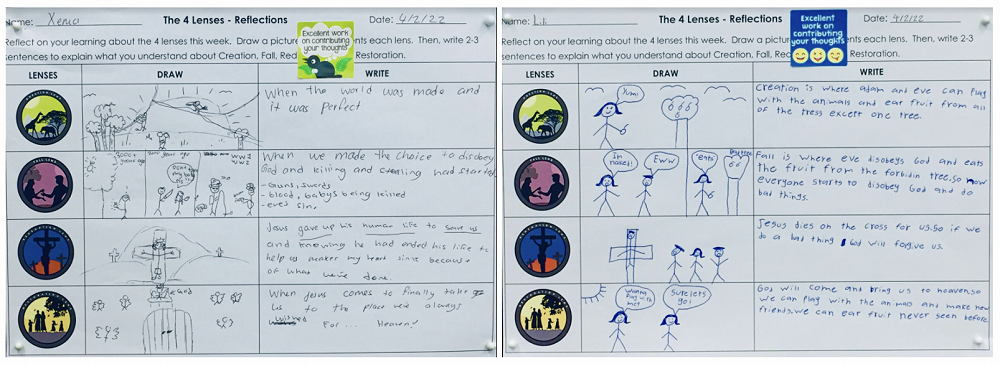 Name: Xenia
The 4 Lenses - Reflections
Date: 4/2/22
Excellent work
on contributing
your thoughts
Reflect on your learning about the 4 lenses this week. Draw a picture nts each lens. Then, write 2-3
sentences to explain what you understand about Creation, Fall, Rede Restoration.
LENSES DRAW WRITE
When the world was made and
it was perfect
When we made the choice to disobey
God and killing and stealing had started
- Guns, swords
- blood, babys being killed
- eves sin.
WW1
WW2
Jesus gave up his human life to save us
and knowing he had ended his life to
help us
because
of what we've done.
God
When Jesus comes to finally take
us to the place we's always
wished For... Heaven!
Name: Lili
The 4 Lenses - Reflections
Date: 4/2/22
Excellent
work on
contributing
your thoughts
Reflect on your learning about the 4 lenses this week. Draw a picture nts each lens. Then, write 2-3
sentences to explain what you understand about Creation, Fall, Red Restoration.
LENSES DRAW WRITE
Yum!
Creation is where adam and eve can play
with the animals and eat fruit from all
of the tress except one tree.
I'm naked!
Eww
*eats*
Fall is where eve disobeys God and eats
the fruit from the forbidin tree.so now
everyone starts to disobey God and do
bad things.
Jesus dies on the cross for us.so if we
do a bad thing God will forgive us.
Wanna
Play with
me?
Sure lets
go!
God will come and bring us to heaven.so
we can play with the animas and make new
friends.we can eat fruit never seen before.